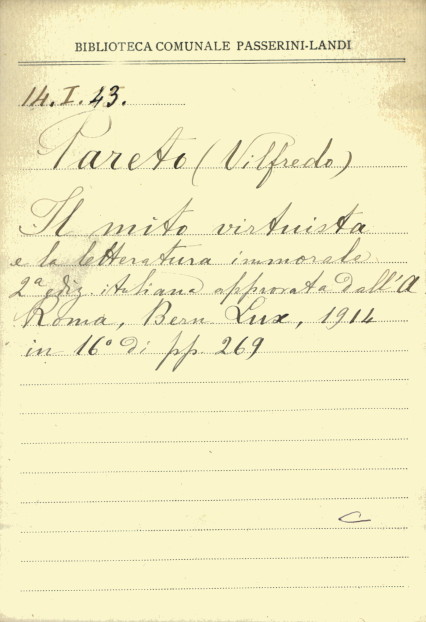 BIBLIOTECA COMUNALE PASSERINI-LANDI
14.I.43.
Pareto (Vilfredo)
Il mito virtuista
e la letteratura immorale
2ª ediz. italiana approvata dall'A
Roma, Bern Lux, 1914
in 16° di pp. 269
C